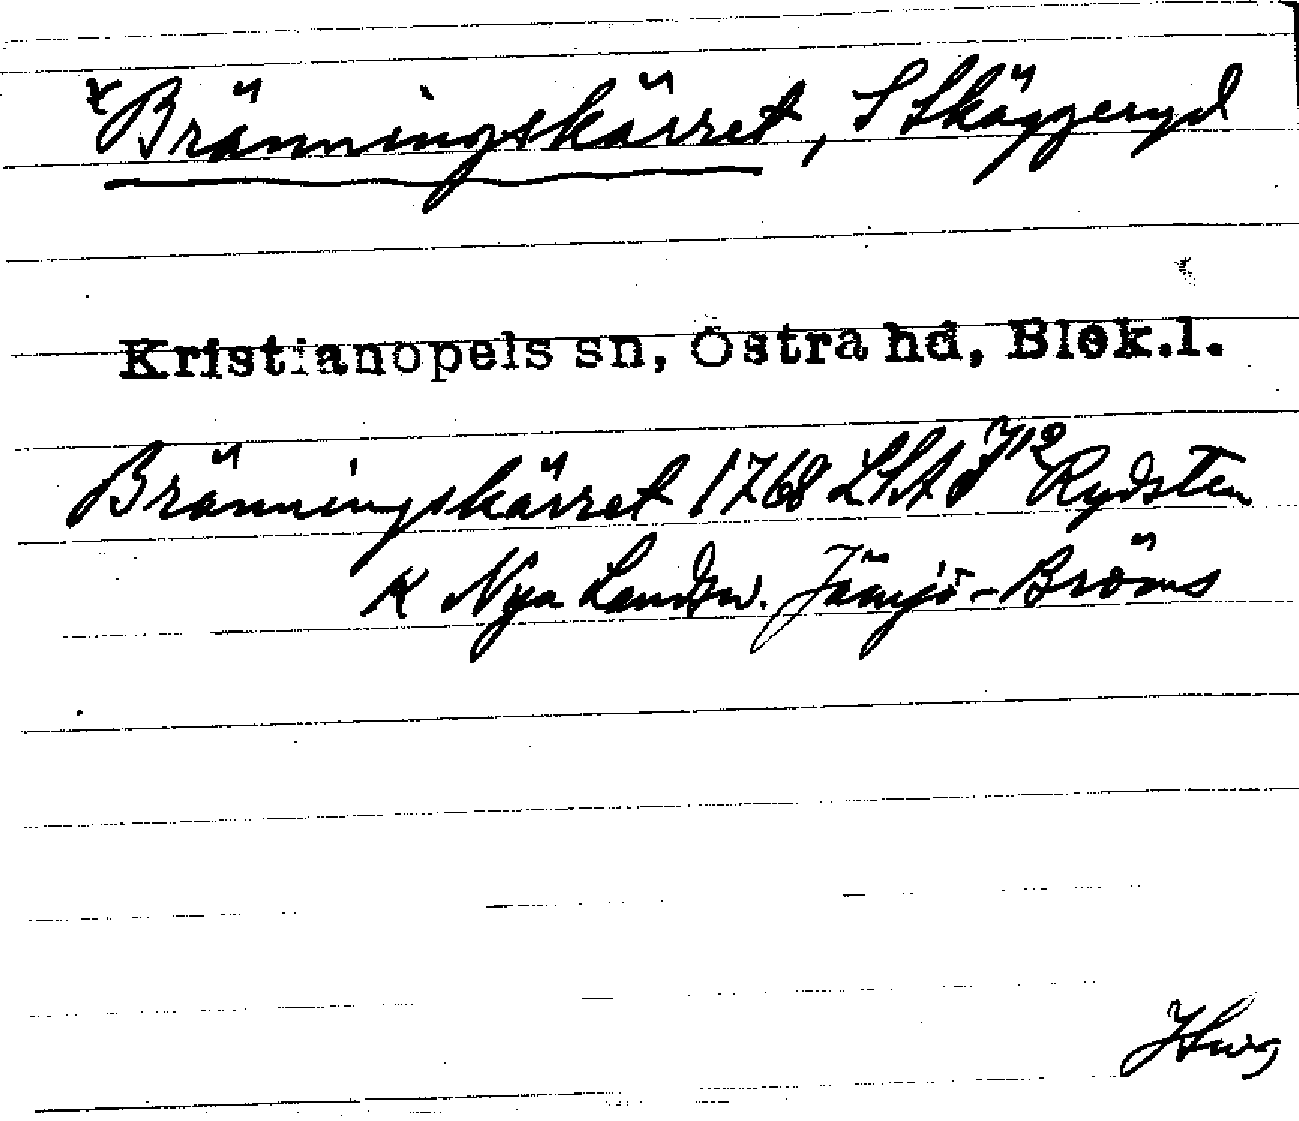 x Bränningskärret, S Skäggeryd
Kristianopels sn, Östra hd, Blek.l.
Bränningskärret 1768 LhA J 12 Rydsten
K Nya Landsv. Jämjö-Bröms